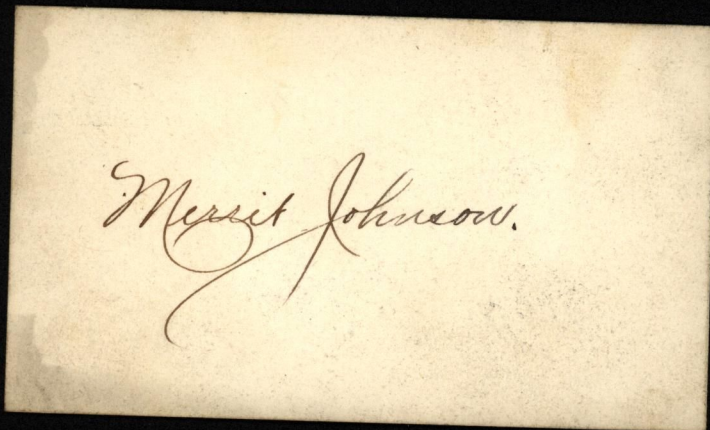 Merrit Johnson.